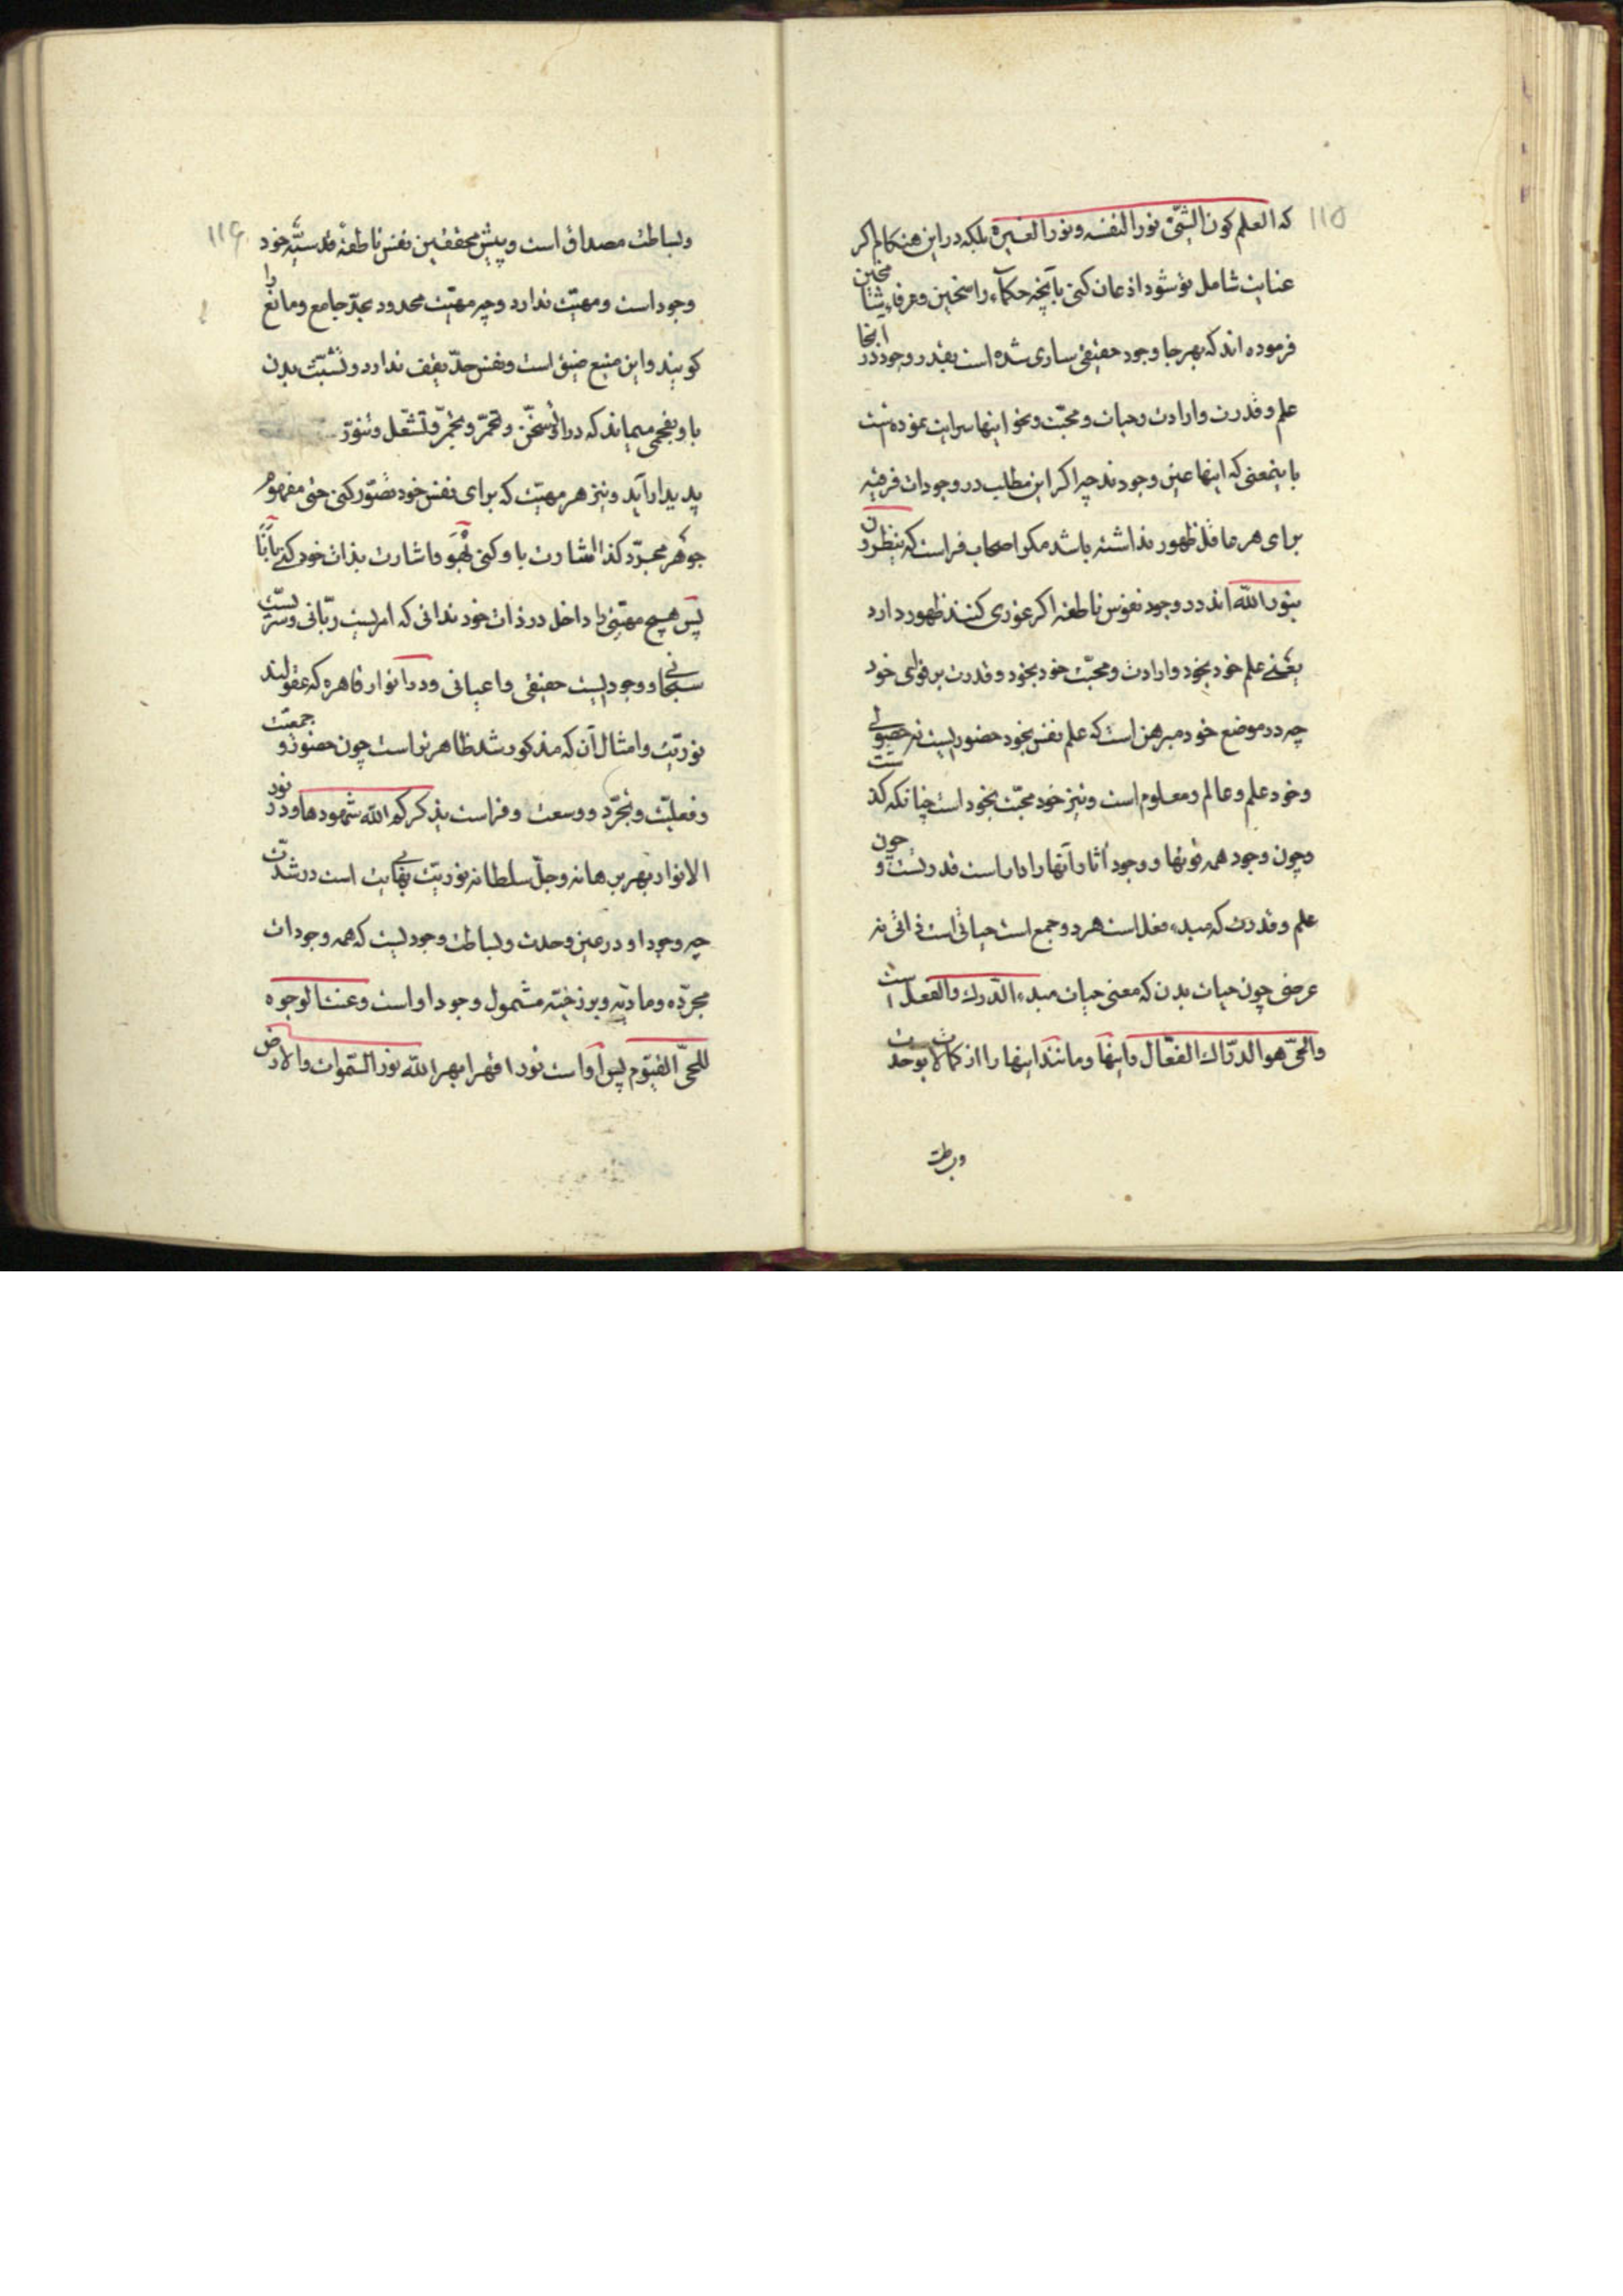 ۱۱۵
که العلم کون الشّیٔ نورا لنفسه و نورا لغیره بلکه در این هنکام اکر
عنایت شامل تو شود اذعان کنی بآنچه حکماء راسخین و عرفاء شامخین
فرموده اند که بهر جا وجود حقیقی ساری شده است بقدر وجود در آنجا
علم و قدرت و ارادت و حیات و محبّت و نحو اینها سرایت نموده است
باینمعنی که اینها عین وجودند چه اکر این مطلب در وجودات فرقیه
برای هر عاقل ظهور نداشته باشد مکر اصحاب فراست که ینظرون
بنور الله اند در وجود نفوس ناطقه اکر غوری کنند ظهور دارد
یعنی علم خود بخود و ارادت و محبّت خود بخود و قدرت بر قوای خود
چه در موضع خود مبرهن است که علم نفس بخود حضوریست نه حصولی
و خود علم و عالم و معلوم است و نیز خود محبّت بخود است چنانکه کذشت
و چون وجود همه قوتها و وجود آثار آنها را داراست قدرتست و چون
علم و قدرت که مبدء فعل است هر دو جمع است حیاتی است ذاتی نه
عرضی چون حیات بدن که معنی حیات مبدء الدّرك و الفعل است
و الحیّ هو الدرّاك الفعّال و اینها و مانند اینها را از کمالات بوحدت
وبساطت
۱۱۶
و بساطت مصداق است و پیش محققین نفس ناطقهٔ قدسیّهٔ خود
وجود است و مهیّت ندارد و چه مهیّت محدود بحدّ جامع و مانع را
کویند و این منبع ضیق است و نفس حدّ یقف ندارد و نسبت بدن
باو بفحمی میماند که در او تسخّن و تحمّر و تجمّر و تشعّل و تنوّر
پدیدار آید و نیز هر مهیّت که برای نفس خود تصوّر کنی حتی مفهوم
جوهر مجرّد کذا اشارت باو کنی بهُوَ و اشارت بذات خود کنی بأنَا
پس هیچ مهیّتی را داخل در ذات خود ندانی که امریست ربّانی و سرّیست
سبحانی و وجودیست حقیقی و اعیانی و در انوار قاهره که عقولند
نوریّت و امثال آن که مذکور شد ظاهر تر است چون حضور و جمعیّت
و فعلیّت و تجرّد و وسعت و فراست یذکرکم الله شهودها و در نور
الانوار بهر برهانه و جلّ سلطانه نوریّت بی نهایت است در شدّت
چه وجود او در عین وحدت و بساطت وجودیست که همه وجودات
مجرّده و مادّیه و برزخیّه مشمول وجود او است و عنت الوجوه
للحیّ القیّوم پس او است نور اقهر ابهر الله نور السّموات والارض